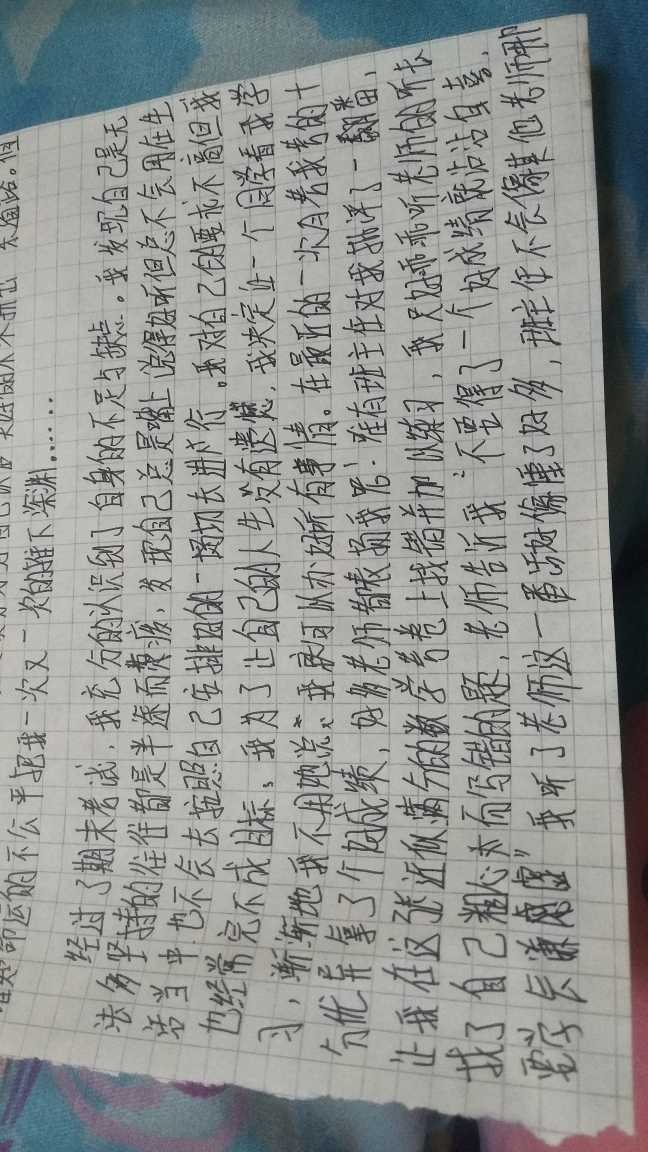 命运的不公平把我一次又一次的推下深渊……
经过了期末考试，我充分的认识到了自身的不足与缺点。我发现自己是无
法多坚持的往往都是半途而废，发现自己总是嘴上说得好听但总不会用在生
活当中，也不会去按照自己安排的一切切去进行。我对自己的要求不高但我
也经常完不成目标，我为了让自己的人生没有遗憾，我决定让一个同学看我学
习，渐渐地我不用她说，我就可以办好所有事情。在最近的一次月考我考的十
分优异拿了个好成绩，好多老师都表扬我，唯有班主任对我批评了一番，
让我在这张近似满分的数学考卷上找错并加以练习，我只好乖乖听老师的所长
找了自己粗心而写错的题，老师告诉我“不要得了一个好成绩就沾沾自喜，
要学会谦虚”我听了老师这一番话好像懂了好多，班主任不会像其他老师那